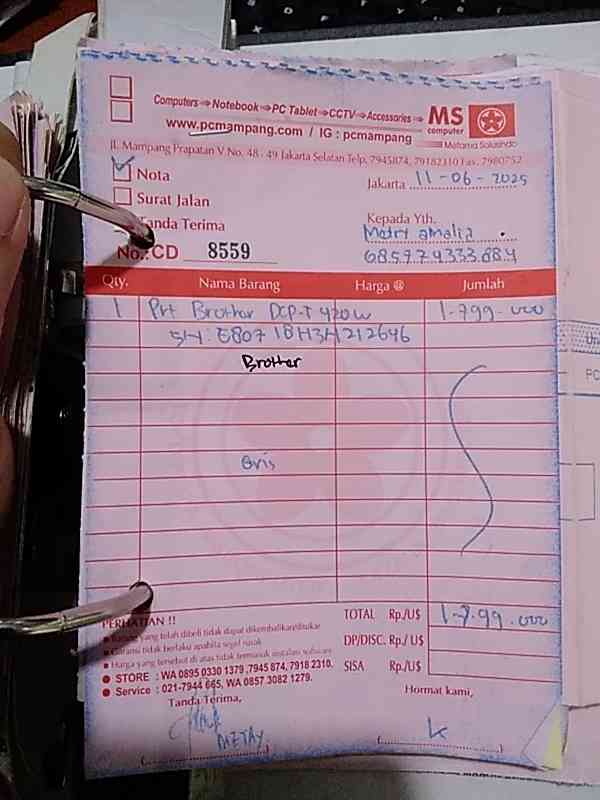 Computers⇒Notebook⇒PC Tablet⇒CCTV⇒Accessories⇒
MS
computer
Metama Solusindo
www.pcmampang.com / IG : pcmampang
Jl. Mampang Prapatan V No. 48 - 49 Jakarta Selatan Telp. 7945874, 79182310 Fax. 7980752
Nota
Jakarta 11-06-2025
Surat Jalan
Tanda Terima
Kepada Yth.
Metry amalia
No.:CD 8559
085779333884
Qty. Nama Barang Harga @ Jumlah
1 Prt Brother DCP-T420W 1.799.000
SN: E80718H3H212646
Brother
TOTAL Rp./U$ 1.799.000
PERHATIAN !!
Barang yang telah dibeli tidak dapat dikembalikan/ditukar
Garansi tidak berlaku apabila segel rusak
Harga yang tersebut di atas tidak termasuk instalasi software
DP/DISC. Rp./ U$
SISA Rp./U$
STORE : WA 0895 0330 1379 ,7945 874, 7918 2310.
Service : 021-7944 665, WA 0857 3082 1279.
Tanda Terima,
Hormat kami,
METRY